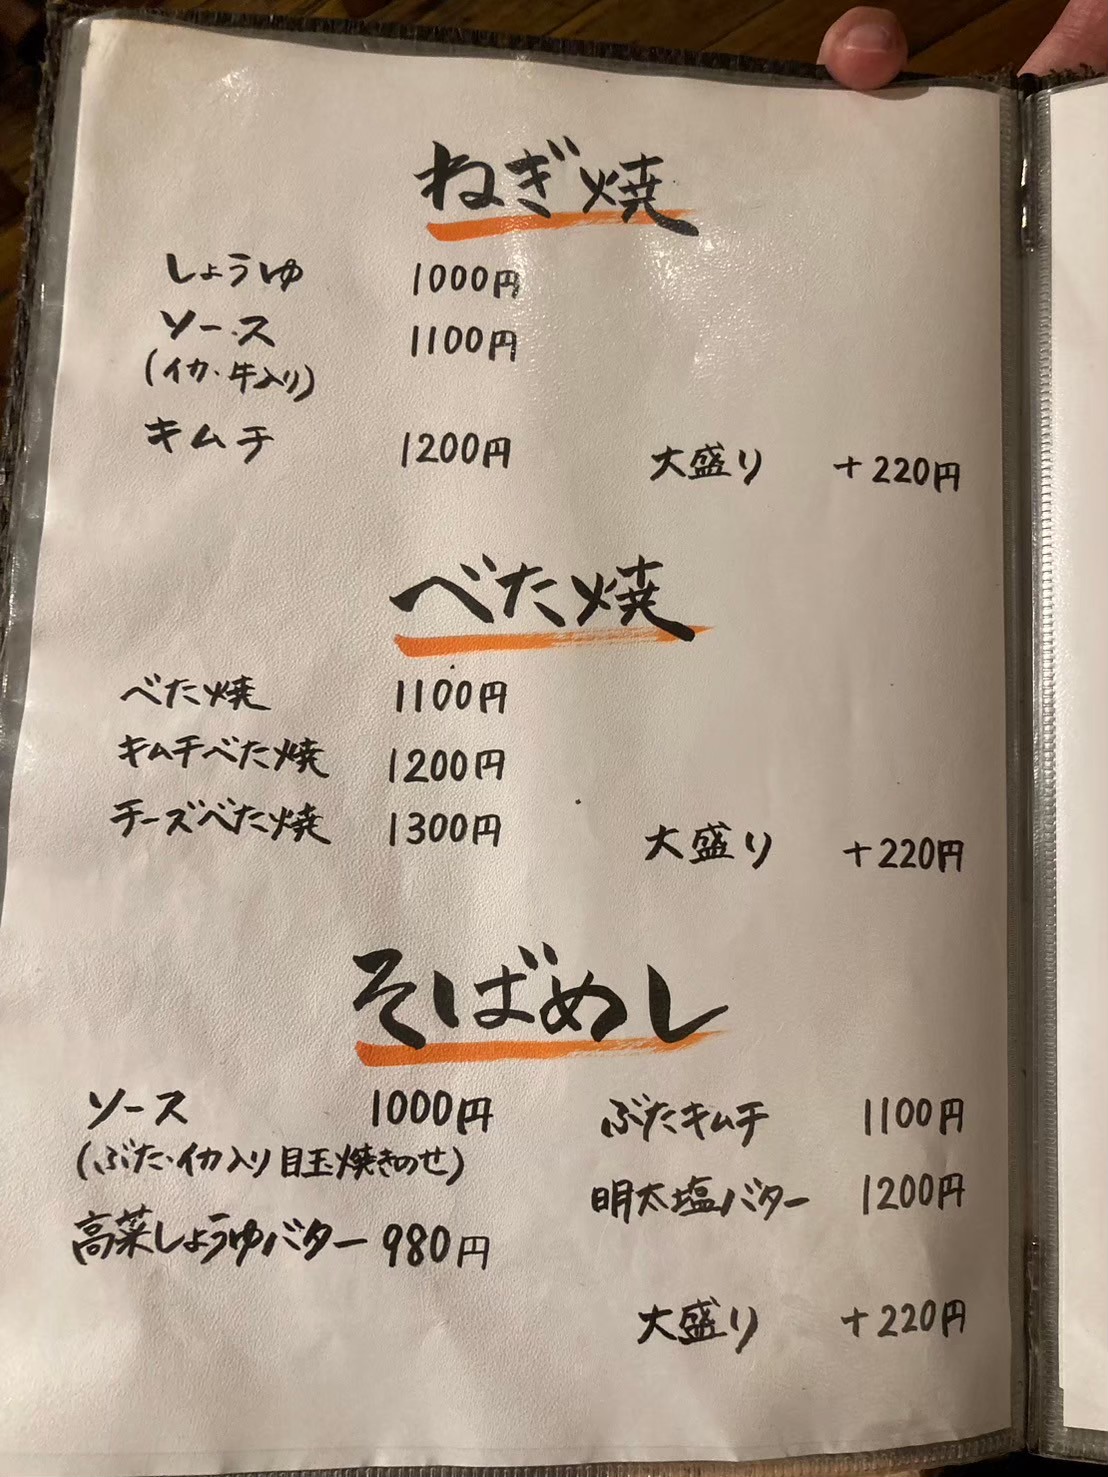 ねぎ焼
しょうゆ 1000円
ソース 1100円
(イカ・牛入り)
キムチ 1200円 大盛り +220円
べた焼
べた焼 1100円
キムチべた焼 1200円
チーズべた焼 1300円 大盛り +220円
そばめし
ソース 1000円 ぶたキムチ 1100円
(ぶた・イカ入り 目玉焼きのせ)
明太塩バター 1200円
高菜しょうゆバター 980円
大盛り +220円